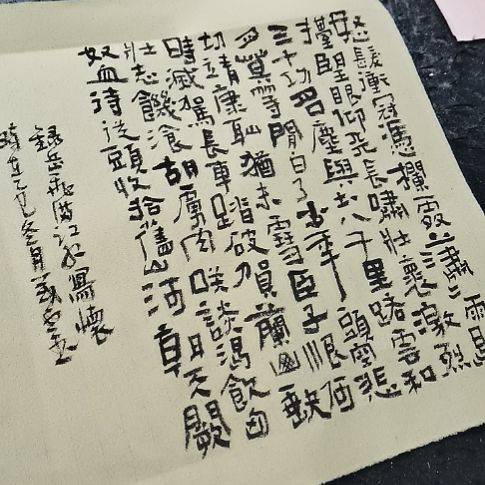 怒髮衝冠憑欄處瀟瀟雨歇
擡望眼仰天長嘯壯懷激烈
三十功名塵與土八千里路雲和
月莫等閒白了少年頭空悲
切靖康恥猶未雪臣子恨何
時滅駕長車踏破賀蘭山缺
壯志饑湌胡虜肉笑談渴飲匈
奴血待從頭收拾舊山河朝天闕
錄岳飛滿江紅寫懷
乙巳冬月